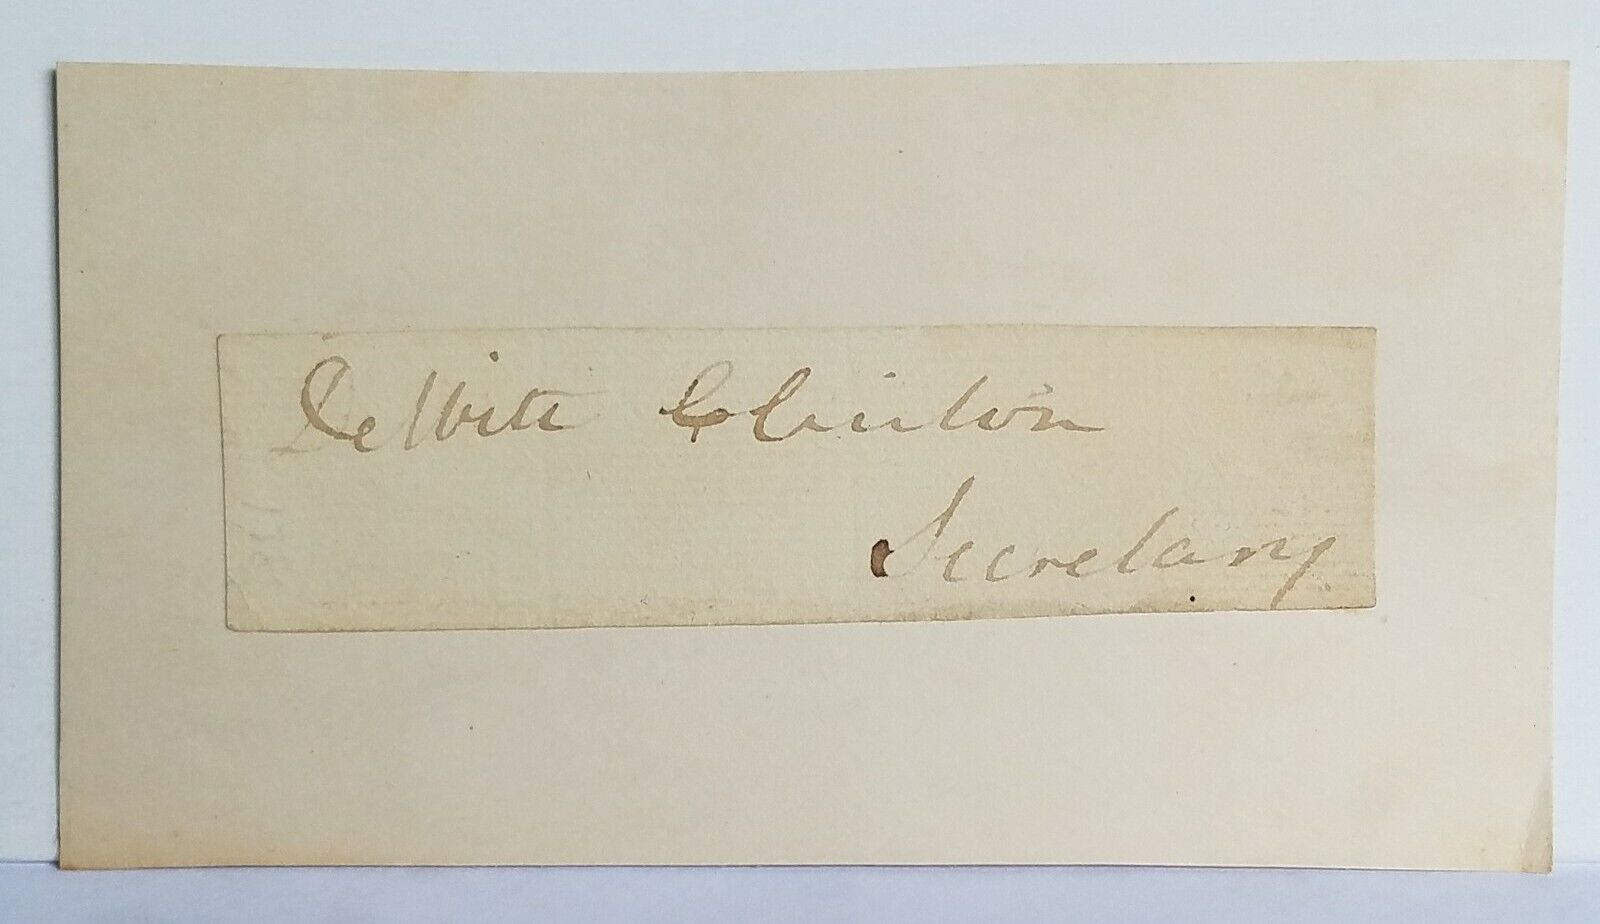 DeWitt Clinton
Secretary